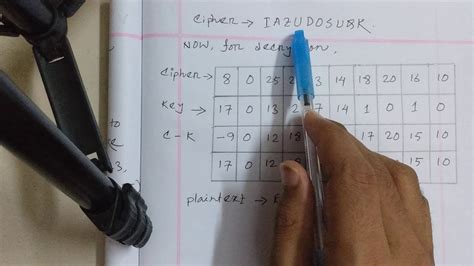 Cipher → IAZUDOSUQK.
NOW, for decryption.
Cipher → 8 0 25 3 14 18 20 16 10
Key → 17 0 13 7 14 1 0 1 0
C-K -9 0 12 18 17 20 15 10
17 0 12 15 10
plaintext →
to
3,